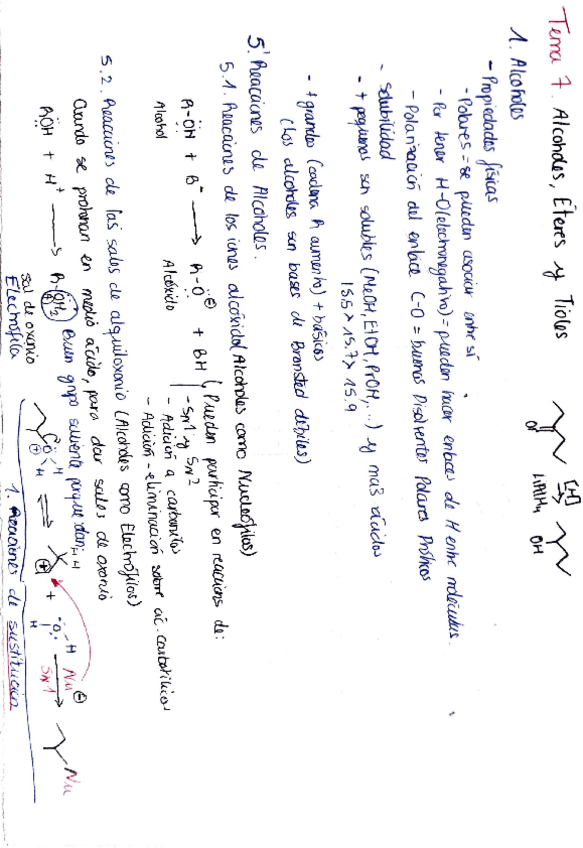 Tema 7. Alcoholes, Éteres y Tioles
1. Alcoholes
- Propiedades físicas
- Polares = se pueden asociar entre sí
- Por tener H-O (electronegativo) = pueden hacer enlaces de H entre moléculas.
- Polarización del enlace C-O = buenos Disolventes Polares Próticos
- Solubilidad
- + pequeños son solubles (MeOH, EtOH, PrOH, ...) y más ácidos
15.5 > 15.7 > 15,9
- + grandes (cadena R aumenta) + básicos
(Los alcoholes son bases de Bronsted débiles)
O
[H]
LiAlH4
OH
5. Reacciones de Alcoholes.
5.1. Reacciones de los iones alcóxido (Alcoholes como Nucleófilos)
R-ÖH + B⁻ → R-O⊖ + BH
Alcohol
Alcóxido
Pueden participar en reacciones de:
- SN1 y SN2
- Adición a carbonilos
- Adición-eliminación sobre ác. carboxílicos
5.2. Reacciones de las sales de alquiloxonio (Alcoholes como Electrófilos)
Cuando se protonan en medio ácido, para dar sales de oxonio
RÖH + H⁺ → R-OH2 ⊕ Buen grupo saliente porque dan
sal de oxonio
Electrófila
H
O
⊕
H
⇌
⊕
+
H
O
H
Nu
⊖
SN1
Nu
1. Reacciones de sustitución